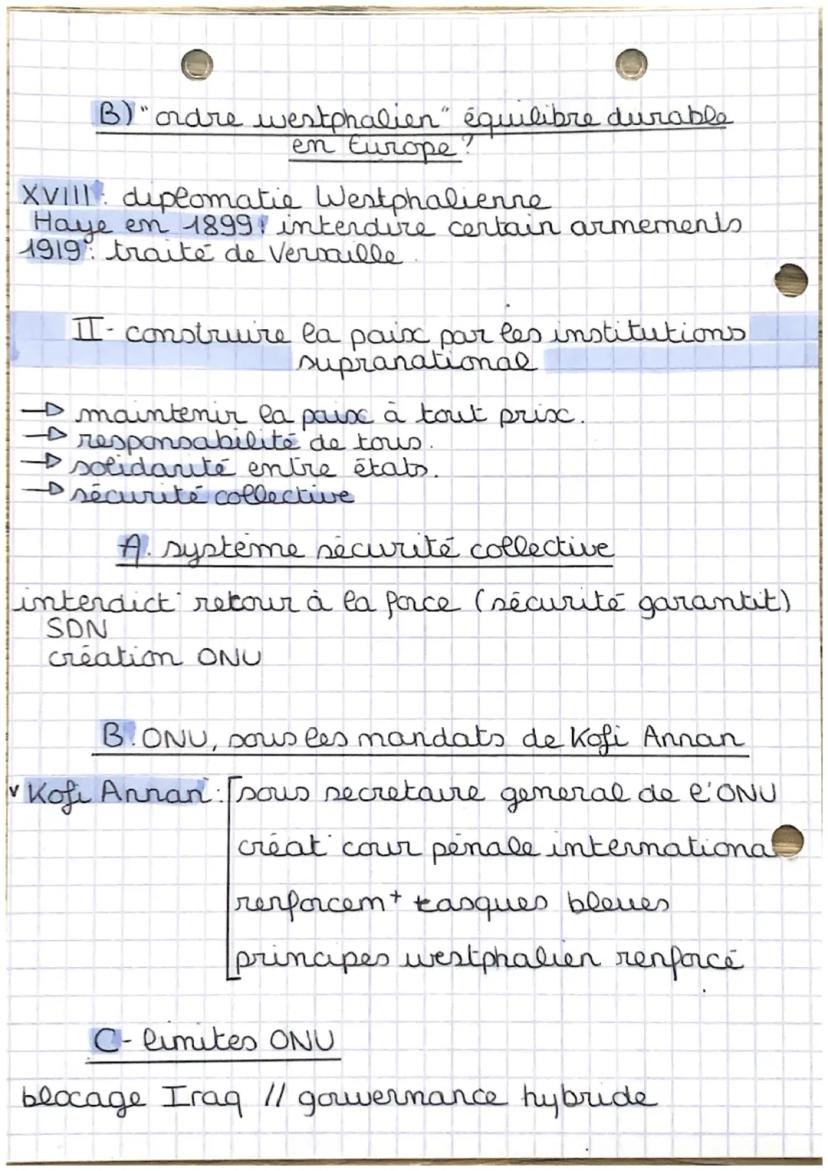 B) "ordre westphalien" équilibre durable
en Europe?
XVIII°: diplomatie Westphalienne
Haye en 1899: interdire certain armements
1919: traité de Versaille.
II- construire la paix par les institutions
supranational
→ maintenir la paix à tout prix.
→ responsabilité de tous.
→ solidarité entre états.
→ sécurité collective
A. système sécurité collective
interdict° retour à la force (sécurité garantit)
SDN
création ONU
B. ONU, sous les mandats de Kofi Annan
v Kofi Annan: [sous secretaire general de l'ONU
créat° cour pénale internationa
renforcem+ casques bleues
principes westphalien renforcé
C- limites ONU
blocage Iraq // gouvernance hybride